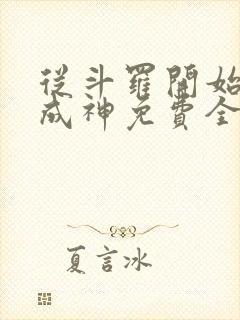 從斗羅開始
成神免費全
夏言冰